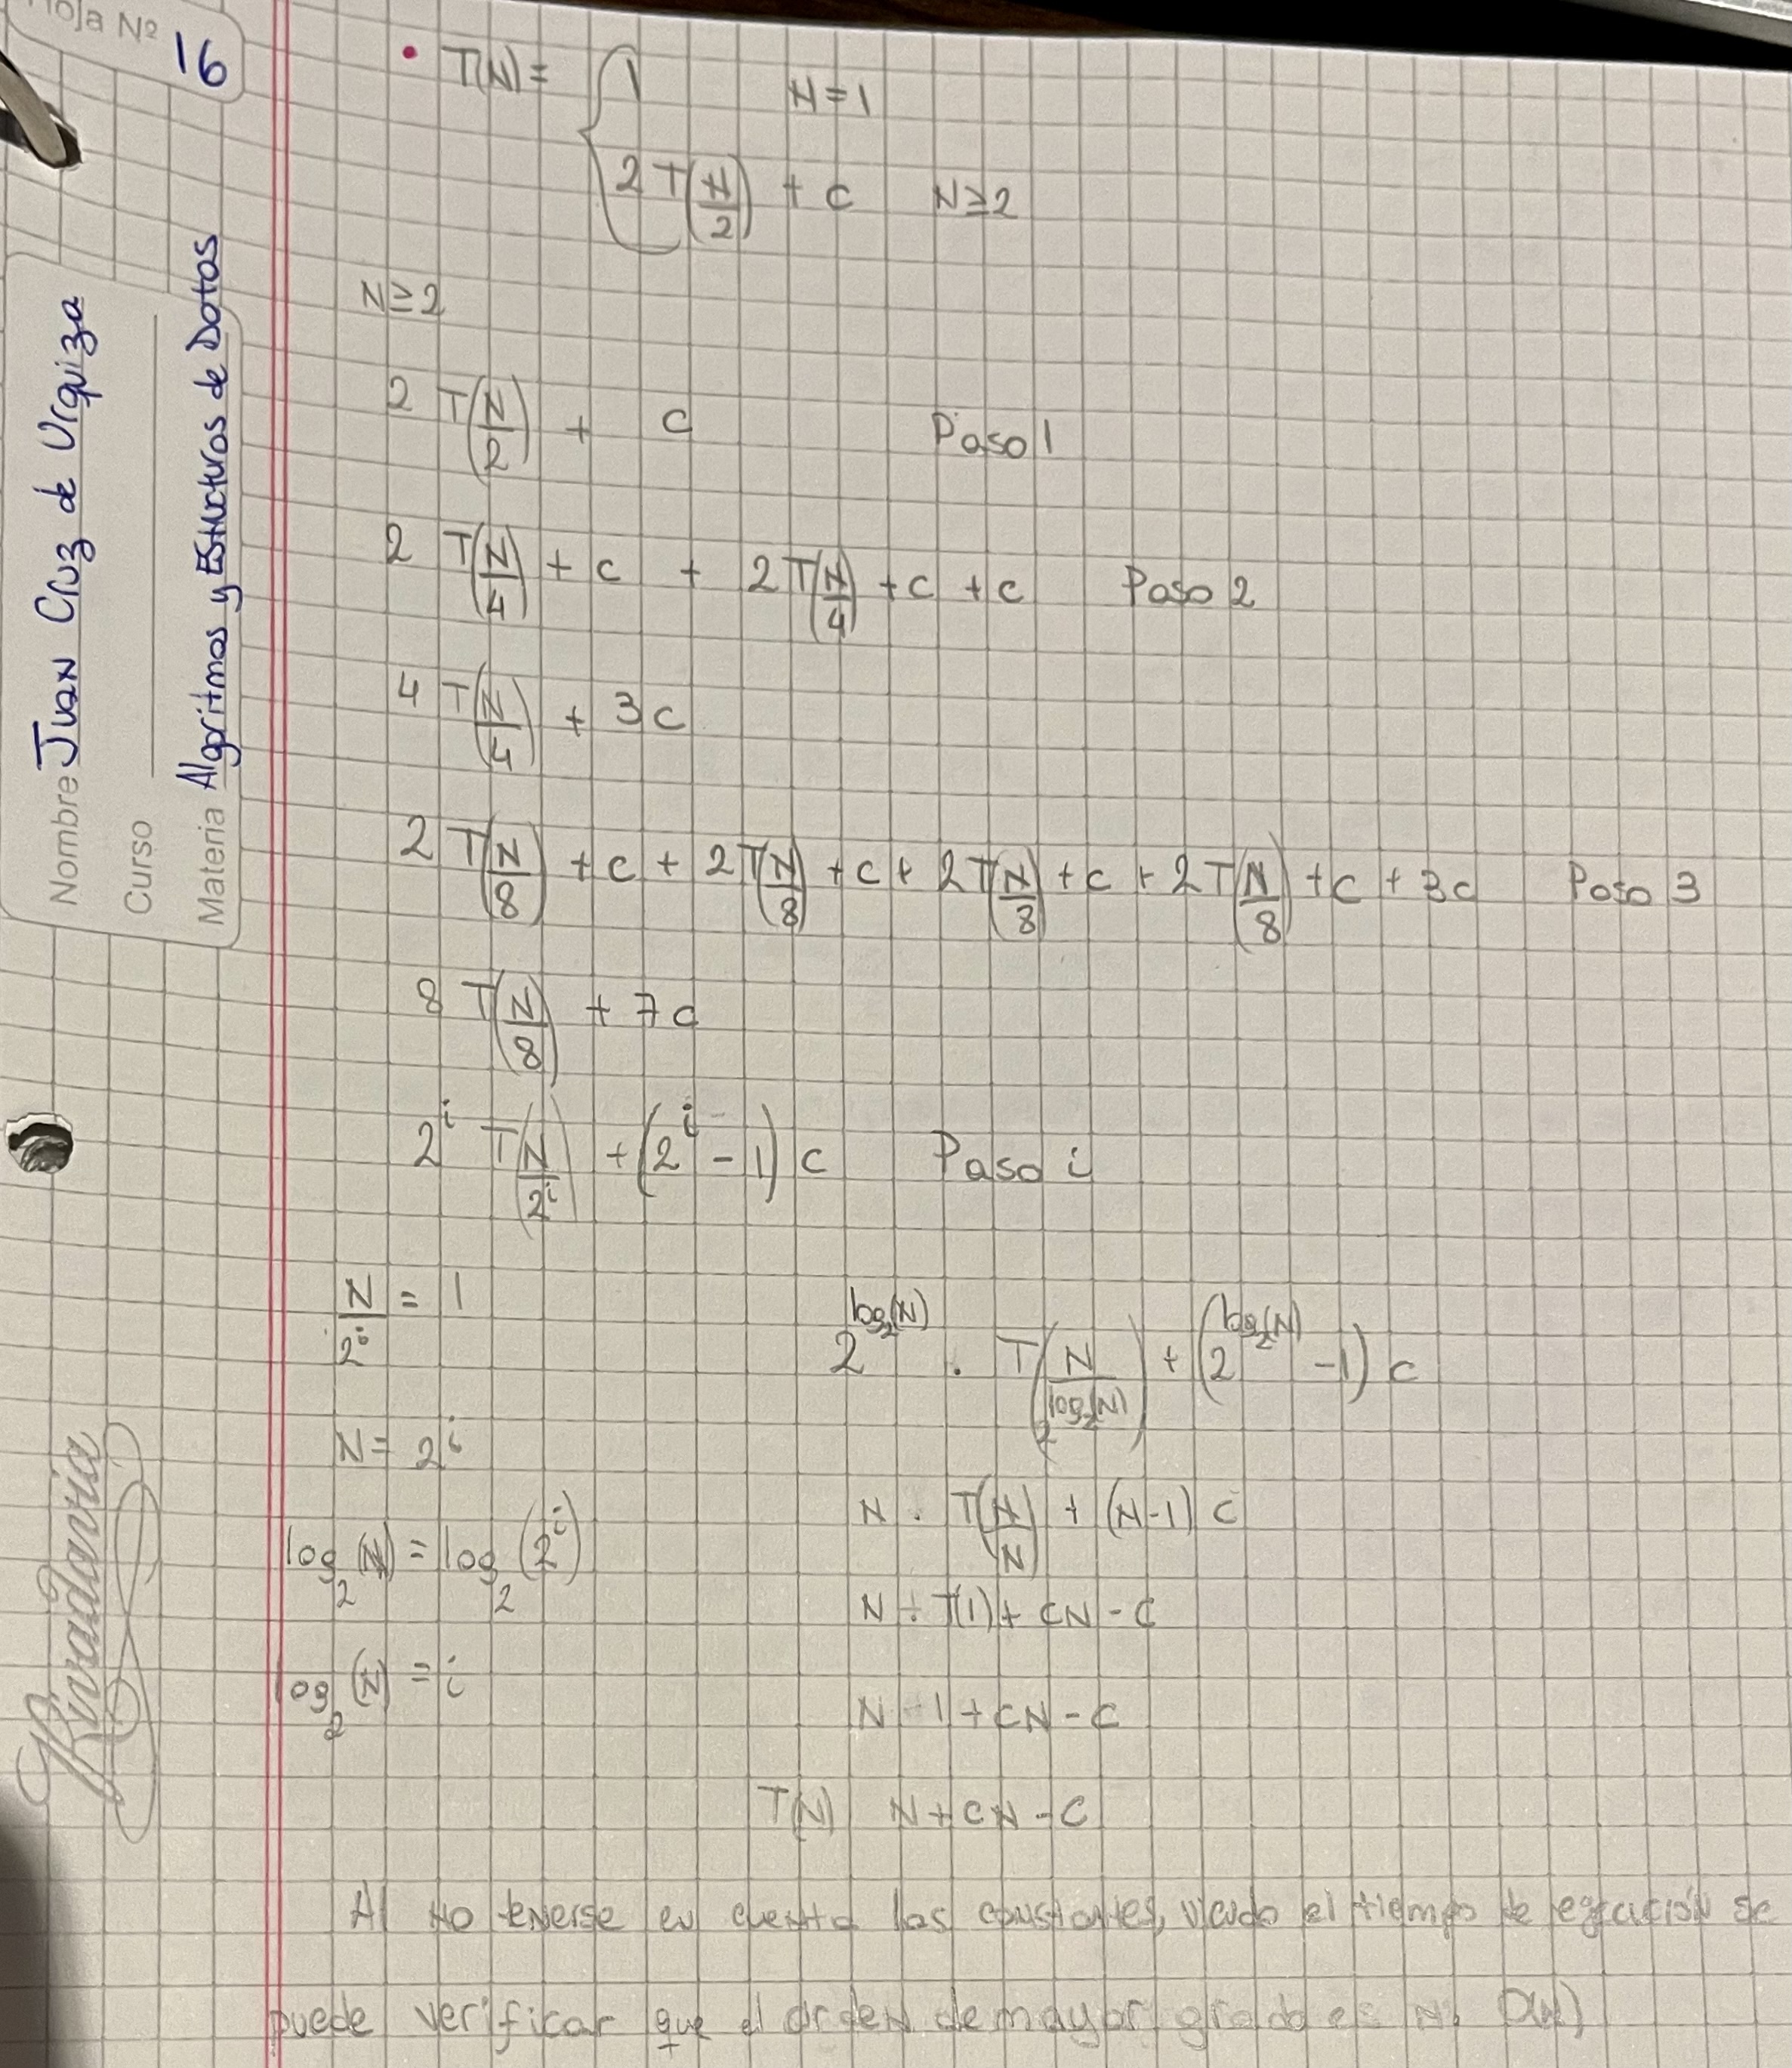 Hoja Nº 16
Nombre Juan Cruz de Urquiza
Curso
Materia Algoritmos y Estructuras de Datos
Rivadavia
• T(N) = { 1 N = 1
2 T(N/2) + c N ≥ 2
N ≥ 2
2 T(N/2) + c Paso 1
2 T(N/4) + c + 2 T(N/4) + c + c Paso 2
4 T(N/4) + 3c
2 T(N/8) + c + 2 T(N/8) + c + 2 T(N/8) + c + 2 T(N/8) + c + 3c Paso 3
8 T(N/8) + 7c
2^i T(N/2^i) + (2^i - 1) c Paso i
N/2^i = 1
N = 2^i
log_2(N) = log_2(2^i)
log_2(N) = i
2^log_2(N) . T(N/2^log_2(N)) + (2^log_2(N) - 1) c
N . T(N/N) + (N-1) c
N . T(1) + cN - c
N . 1 + cN - c
T(N) N + cN - c
Al no tenerse en cuenta las constantes, viendo el tiempo de ejecución se
puede verificar que el orden de mayor grado es N. O(N)